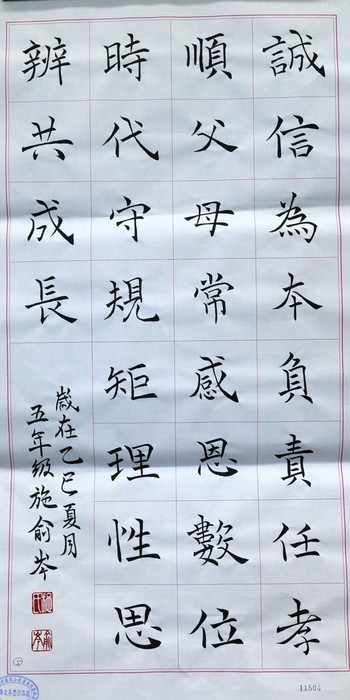 誠信為本負責任孝
順父母常感恩數位
時代守規矩理性思
辨共成長
歲在乙巳夏月
五年級施俞岑
11504